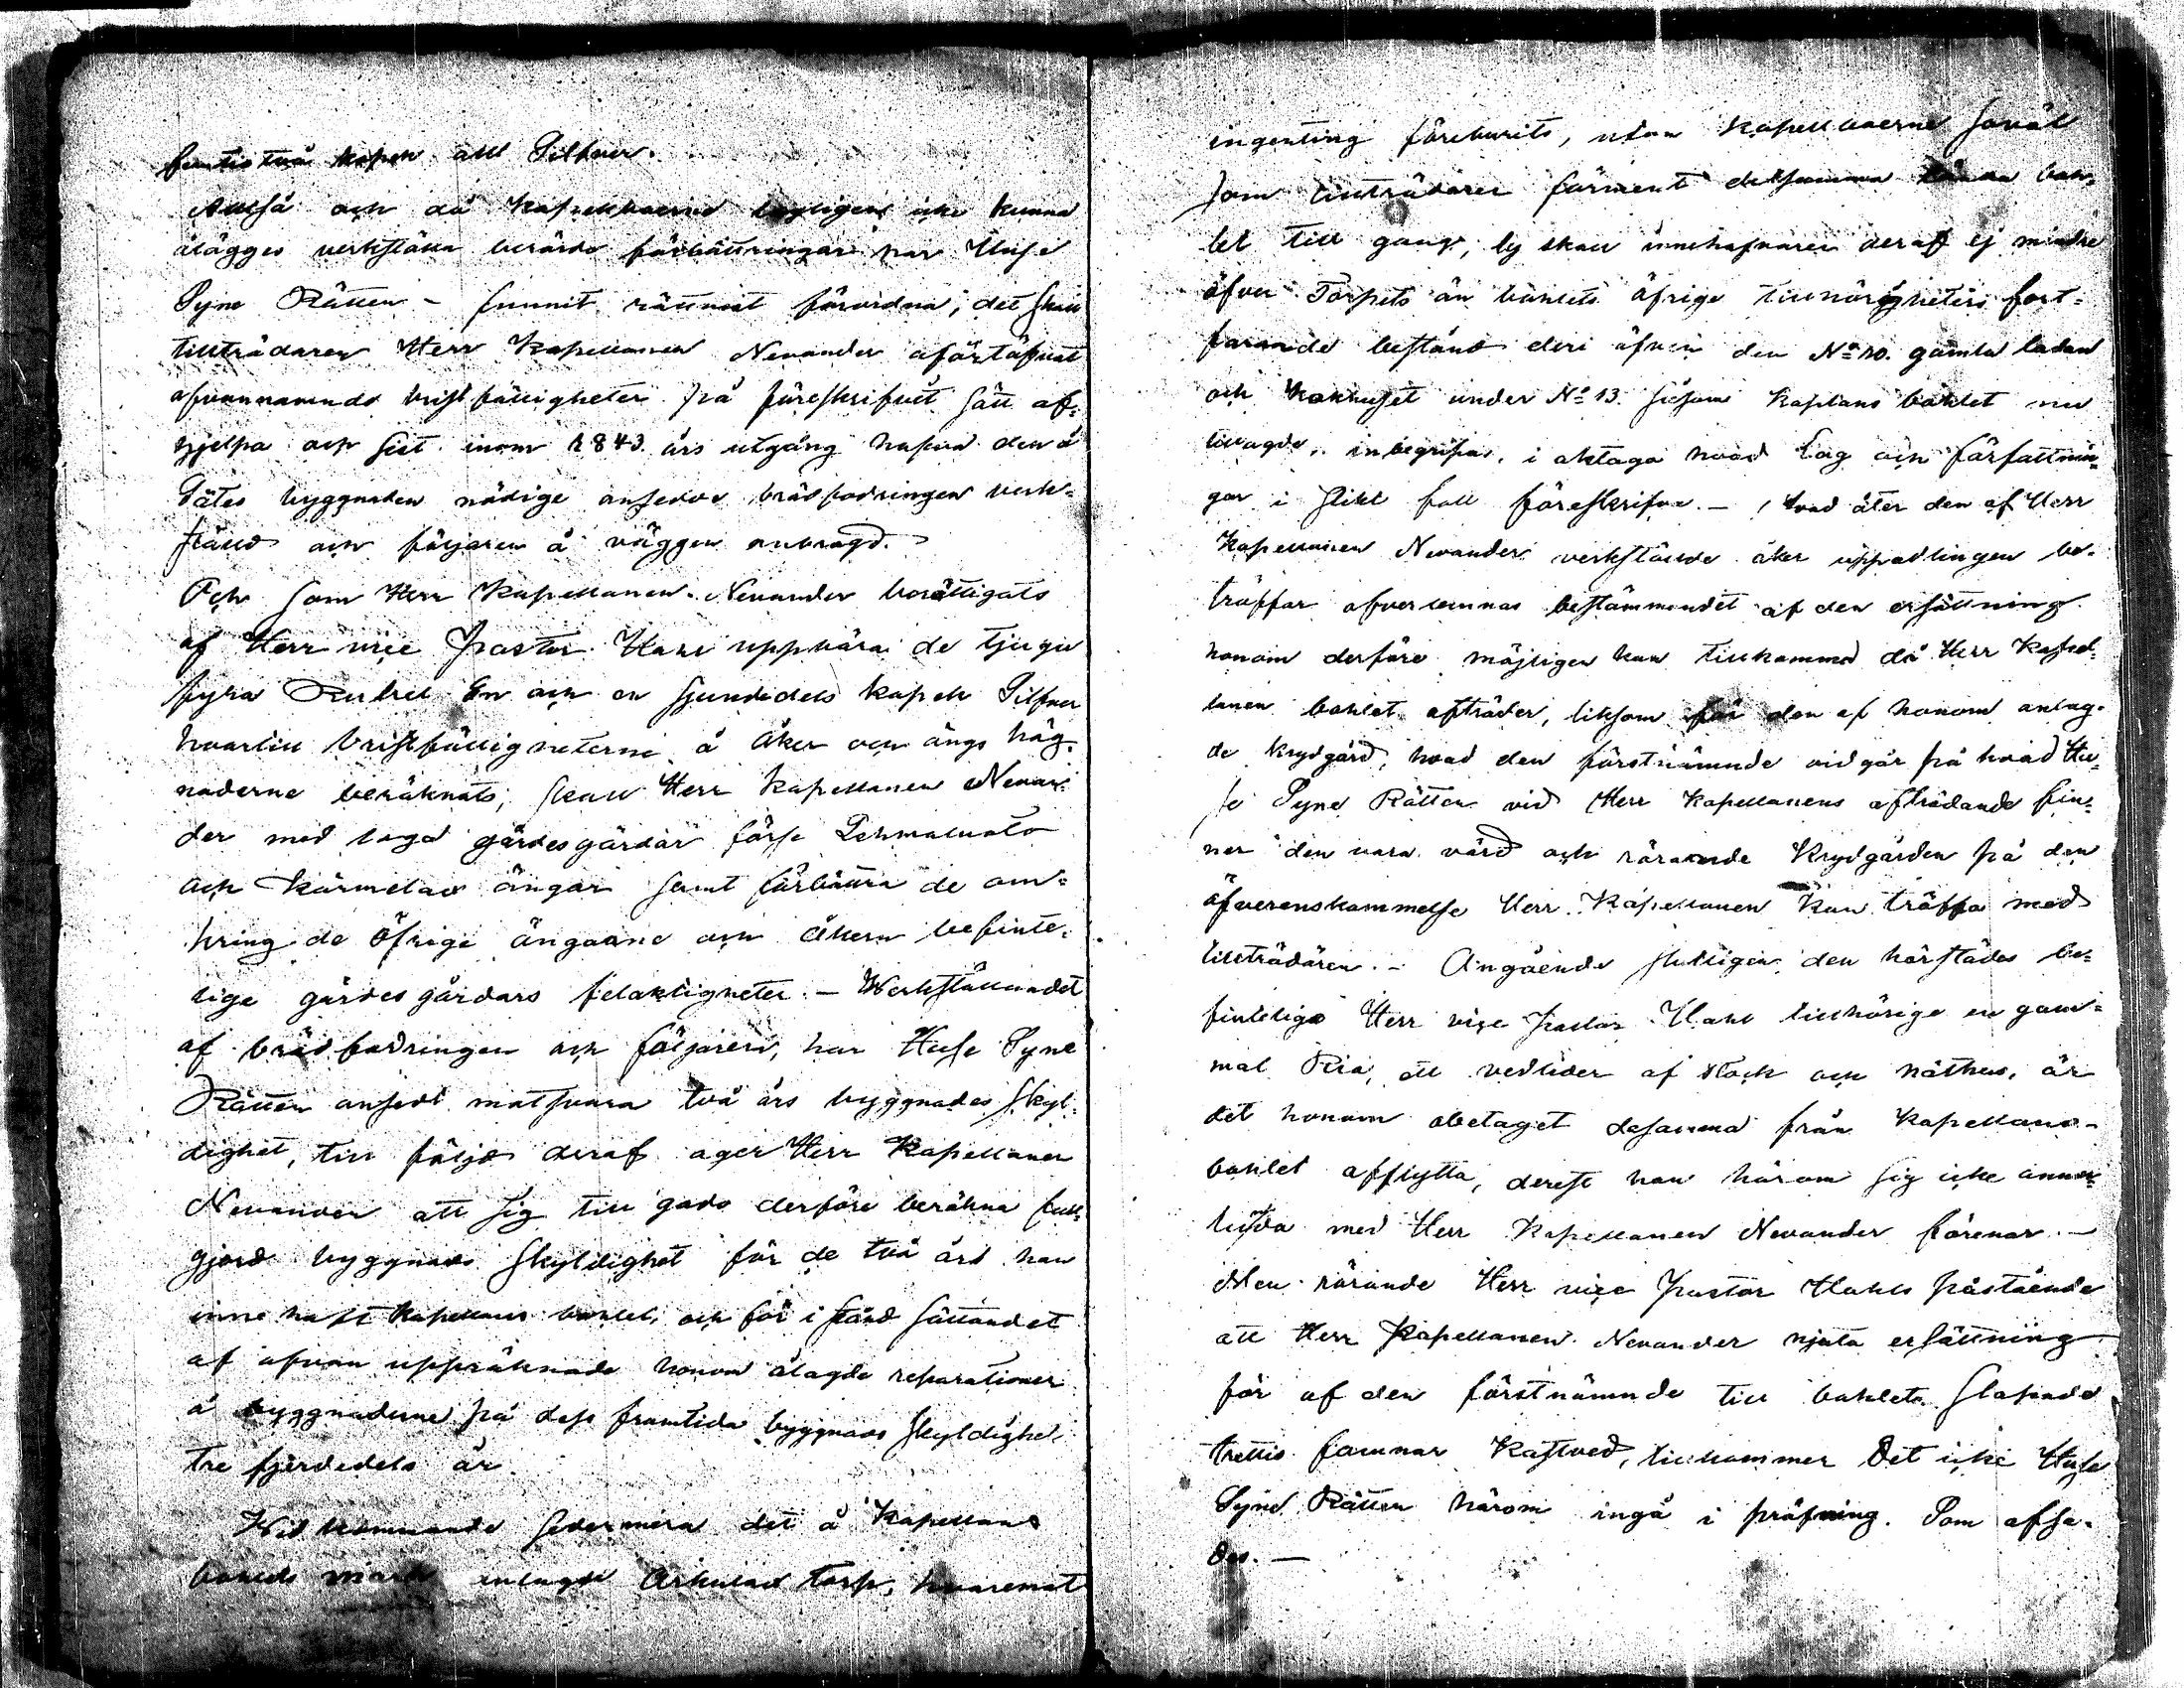 femtiotvå kopek allt Silfver.
Alltså och då Kapellboerne lagligen icke kunna
åläggas verkställa berörde förbättringar har Huse
Syne Rätten – funnit rättvist förordna, det skall
tillträdaren Herr Kapellanen Nevander oförtöfvat
ofvannämnde bristfälligheter på föreskrifvet sätt af-
hjelpa och sist inom 1843 års utgång hafva den å
Sätes byggnaden nödige ansedde brädfodringen verk-
ställd och följaren å väggen anbragd.
Och som Herr Kapellanen Nevander berättigats
af Herr vice Pastor Hahl uppbära de tjugu
fyra Rubel En och en sjundedels kopek Silfver
hvartill bristfälligheterne å åker och ängs häg-
naderne beräknats, skall Herr Kapellanen Nevan-
der med laga gärdesgårdar förse Lehmaluoto
och Kärmelax ängar samt förbättra de om-
kring de öfrige ängarne och åkern befinte-
lige gärdesgårdars felaktigheter. – Werkställandet
af brädfodringen och följaren, har Huse Syne
Rätten ansedt motsvara två års byggnads skyl-
dighet, till följe deraf äger Herr Kapellanen
Nevander att sig till godo derföre beräkna full-
gjord byggnads skyldighet för de två års han
innehaft Kapellans bohlet, och för i stånd sättandet
af ofvan uppräknade honom ålagde reparationer
å byggnaderne på dess framtida byggnads skyldighet
tre fjerdedels år.
Widkommande sedermera det å Kapellans
bohlets mark anlagde Arkulax torp, hvaremot
ingenting föreburits, utan Kapellboerne såväl
som tillträdaren förment detsamma lända boh-
let till gangn, ty skall innehafvaren deraf ej mindre
öfver Torpets än bohlets öfrige tillhörigheters fort-
farande bestånd deri äfven den No 10. gamla ladan
och Kokhuset under No 13. såsom Kaplans bohlet nu
tillagde, inbegripas, i akttaga hvad Lag och författnin-
gar i slikt fall föreskrifva. – Hvad åter den af Herr
Kapellanen Nevander verkställde åker uppodlingen be-
träffar ofverlemnas bestämmandet af den ersättning
honom derföre möjligen kan tillkomma då Herr Kapel-
lanen bohlet afträder, liksom för den af honom anlag-
de krydgård, hvad den förstnämnde vidgår på hvad Hu-
se Syne Rätten vid Herr Kapellanens afträdande fin-
ner den vara värd och rörande Krydgården på den
öfverenskommelse Herr Kapellanen kan träffa med
tillträdaren. – Angående slutligen den härstädes be-
finteliga Herr vice Pastor Hahl tillhörige en gam-
mal Ria, ett vedlider af stock och näthus, är
det honom obetaget desamma från Kapellans-
bohlet afflytta, derest han härom sig icke annor-
lunda med Herr Kapellanen Nevander förenar. –
Men rörande Herr vice Pastor Hahls påstående
att Herr Kapellanen Nevander njuta ersättning
för af den förstnämnde till bohlets slafande
trettio famnar Kastved, tillkommer det icke Huse
Syne Rätten härom ingå i pröfning. Som afsa-
des. –